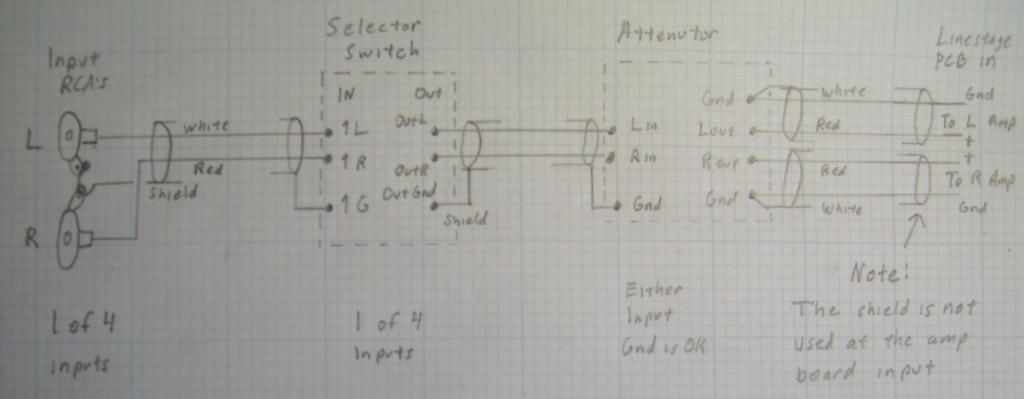 Input
RCA's
L
R
White
Red
Shield
1 of 4
inputs
Selector
Switch
IN
Out
1L
Out L
1R
Out R
1G
Out Gnd
Shield
1 of 4
Inputs
Attenutor
Gnd
L in
L out
R in
R out
Gnd
Gnd
Either
Input
Gnd is OK
White
Red
Red
White
Linestage
PCB in
Gnd
To L Amp
+
+
To R Amp
Gnd
Note!
The shield is not
used at the amp
board input